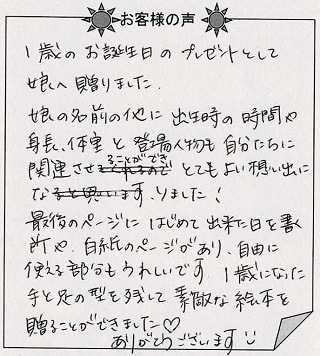 お客様の声
1歳のお誕生日のプレゼントとして
娘へ贈りました.
娘の名前の他に出生時の時間や
身長、体重と登場人物も自分たちに
関連させることができ とてもよい想い出に
なりました!
最後のページに はじめて出来た日を書く
所や、白紙のページがあり、自由に
使える部分もうれしいです 1歳になった
手と足の型を残して 素敵な絵本を
贈ることができました♡
ありがとうございます